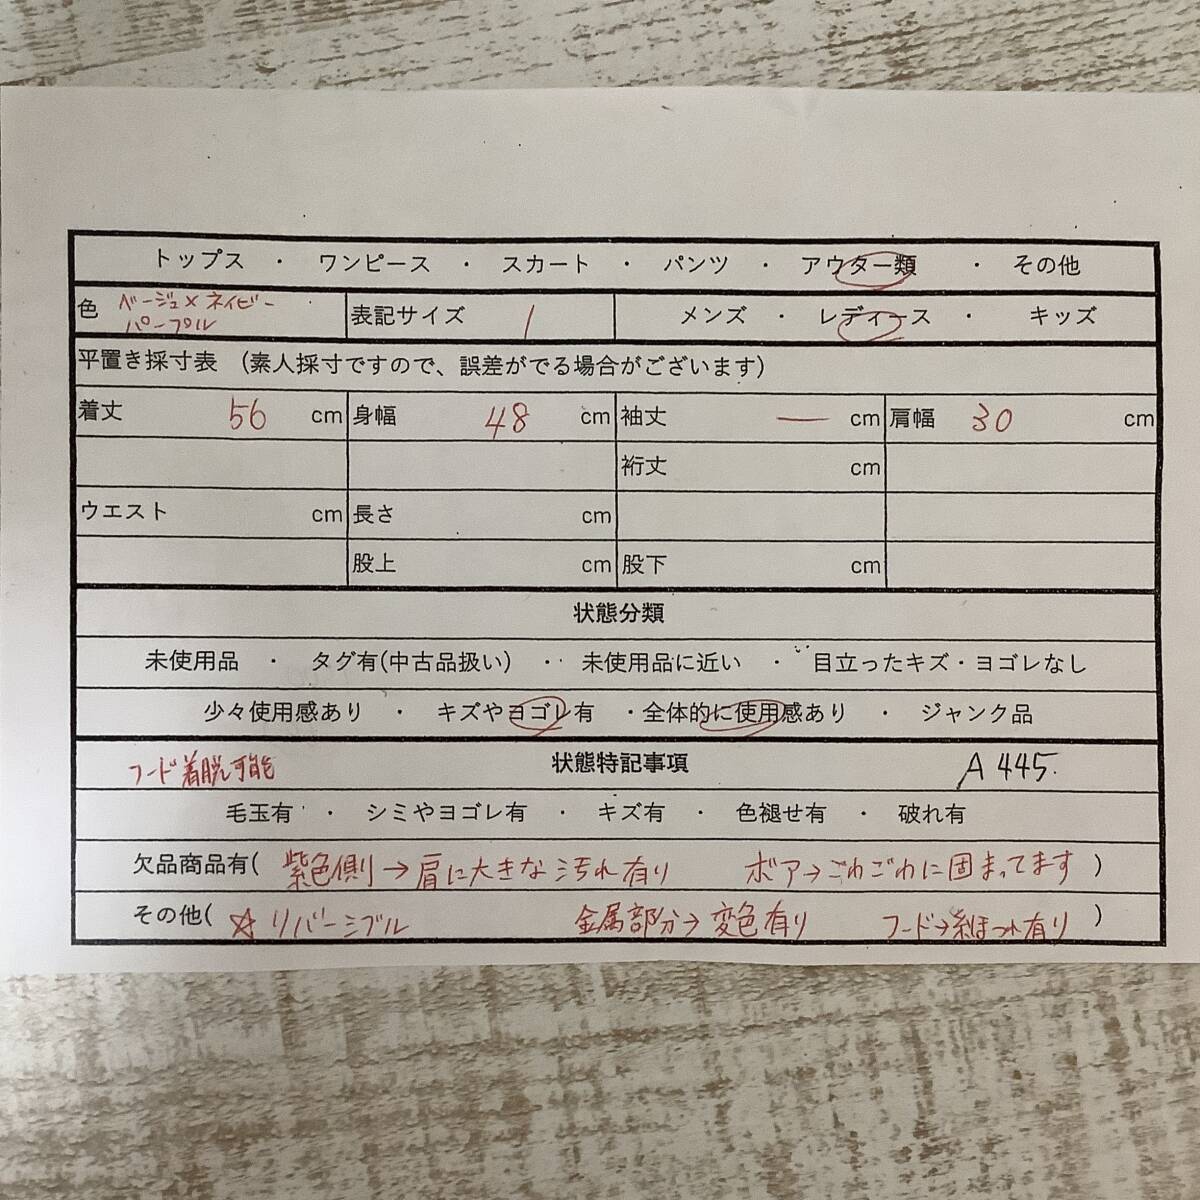 トップス ・ ワンピース ・ スカート ・ パンツ ・ アウター類 ・ その他
色 ベージュ×ネイビー パープル 表記サイズ 1 メンズ ・ レディース ・ キッズ
平置き採寸表 (素人採寸ですので、誤差がでる場合がございます)
着丈 56 cm 身幅 48 cm 袖丈 ー cm 肩幅 30 cm
裄丈 cm
ウエスト cm 長さ cm
股上 cm 股下 cm
状態分類
未使用品 ・ タグ有(中古品扱い) ・ 未使用品に近い ・ 目立ったキズ・ヨゴレなし
少々使用感あり ・ キズやヨゴレ有 ・全体的に使用感あり ・ ジャンク品
フード着脱可能 状態特記事項 A445.
毛玉有 ・ シミやヨゴレ有 ・ キズ有 ・ 色褪せ有 ・ 破れ有
欠品商品有( 紫色側→肩に大きな汚れ有り ボア→ごわごわに固まってます )
その他( ☆リバーシブル 金属部分→変色有り フード→糸ほつれ有り )